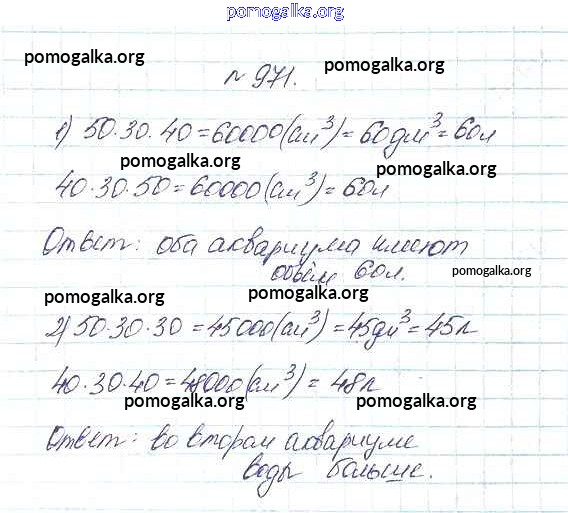 pomogalka.org
pomogalka.org pomogalka.org
№ 971.
1) 50·30·40=60000(см³)=60дм³=60л
pomogalka.org pomogalka.org
40·30·50=60000(см³)=60л
Ответ: оба аквариума имеют
объём 60л.
pomogalka.org
pomogalka.org pomogalka.org
2) 50·30·30=45000(см³)=45дм³=45л
40·30·40=48000(см³)=48л
pomogalka.org pomogalka.org
Ответ: во втором аквариуме
воды больше.